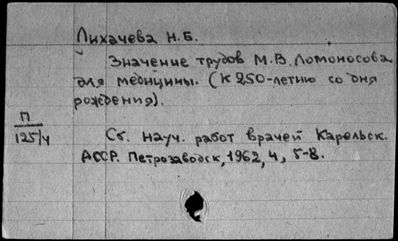 Лихачева Н.Б.
Значение трудов М.В. Ломоносова
для медицины. (К 250-летию со дня
рождения).
П
125/4
Сб. науч. работ врачей Карельск.
АССР. Петрозаводск, 1962, 4, 5-8.